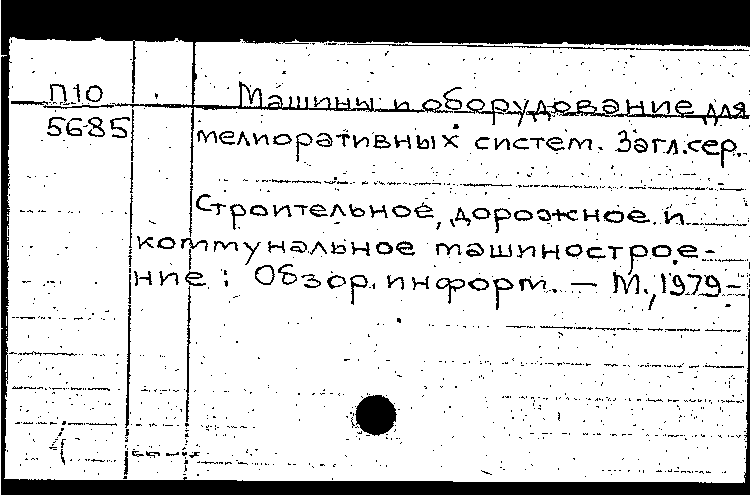 П10 Машины и оборудование для
5685 мелиоративных систем. Загл.сер.
Строительное, дорожное и
коммунальное машинострое-
ние: Обзор. информ. — М., 1979-